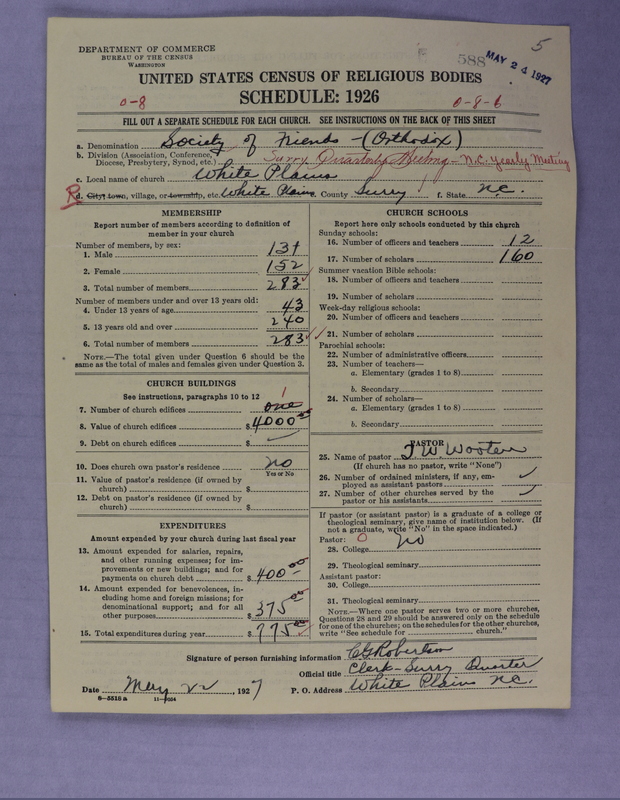 5
588 MAY 24 1927
DEPARTMENT OF COMMERCE
BUREAU OF THE CENSUS
WASHINGTON
UNITED STATES CENSUS OF RELIGIOUS BODIES
SCHEDULE: 1926
0-8 0-8-6
FILL OUT A SEPARATE SCHEDULE FOR EACH CHURCH. SEE INSTRUCTIONS ON THE BACK OF THIS SHEET
a. Denomination Society of Friends - (Orthodox)
b. Division (Association, Conference, Diocese, Presbytery, Synod, etc.) Surry Quarterly Meeting - N.C. Yearly Meeting
c. Local name of church White Plains
R d. City, town, village, or township, etc. White Plains. County Surry f. State N.C.
MEMBERSHIP
Report number of members according to definition of
member in your church
Number of members, by sex:
1. Male 131
2. Female 152
3. Total number of members 283
Number of members under and over 13 years old:
4. Under 13 years of age 43
5. 13 years old and over 240
6. Total number of members 283
NOTE.—The total given under Question 6 should be the
same as the total of males and females given under Question 3.
CHURCH BUILDINGS
See instructions, paragraphs 10 to 12
1
7. Number of church edifices one
8. Value of church edifices $4000.00
9. Debt on church edifices $
10. Does church own pastor's residence no
Yes or No
11. Value of pastor's residence (if owned by
church) $
12. Debt on pastor's residence (if owned by
church) $
EXPENDITURES
Amount expended by your church during last fiscal year
13. Amount expended for salaries, repairs,
and other running expenses; for im-
provements or new buildings; and for
payments on church debt $400.00
14. Amount expended for benevolences, in-
cluding home and foreign missions; for
denominational support; and for all
other purposes $375.00
15. Total expenditures during year $775.00
CHURCH SCHOOLS
Report here only schools conducted by this church
Sunday schools:
16. Number of officers and teachers 12
17. Number of scholars 160
Summer vacation Bible schools:
18. Number of officers and teachers
19. Number of scholars
Week-day religious schools:
20. Number of officers and teachers
21. Number of scholars
Parochial schools:
22. Number of administrative officers
23. Number of teachers—
a. Elementary (grades 1 to 8)
b. Secondary
24. Number of scholars—
a. Elementary (grades 1 to 8)
b. Secondary
PASTOR
25. Name of pastor J W Wooten
(If church has no pastor, write "None")
26. Number of ordained ministers, if any, em-
ployed as assistant pastors
27. Number of other churches served by the
pastor or his assistants
If pastor (or assistant pastor) is a graduate of a college or
theological seminary, give name of institution below. (If
not a graduate, write "No" in the space indicated.)
Pastor: 0
28. College no
29. Theological seminary
Assistant pastor:
30. College
31. Theological seminary
NOTE.—Where one pastor serves two or more churches,
Questions 28 and 29 should be answered only on the schedule
for one of the churches; on the schedules for the other churches,
write "See schedule for church."
Signature of person furnishing information C G Robertson
Official title Clerk - Surry Quarter
Date May 22, 1927 P. O. Address White Plains N.C.
8—5518a 11—9034